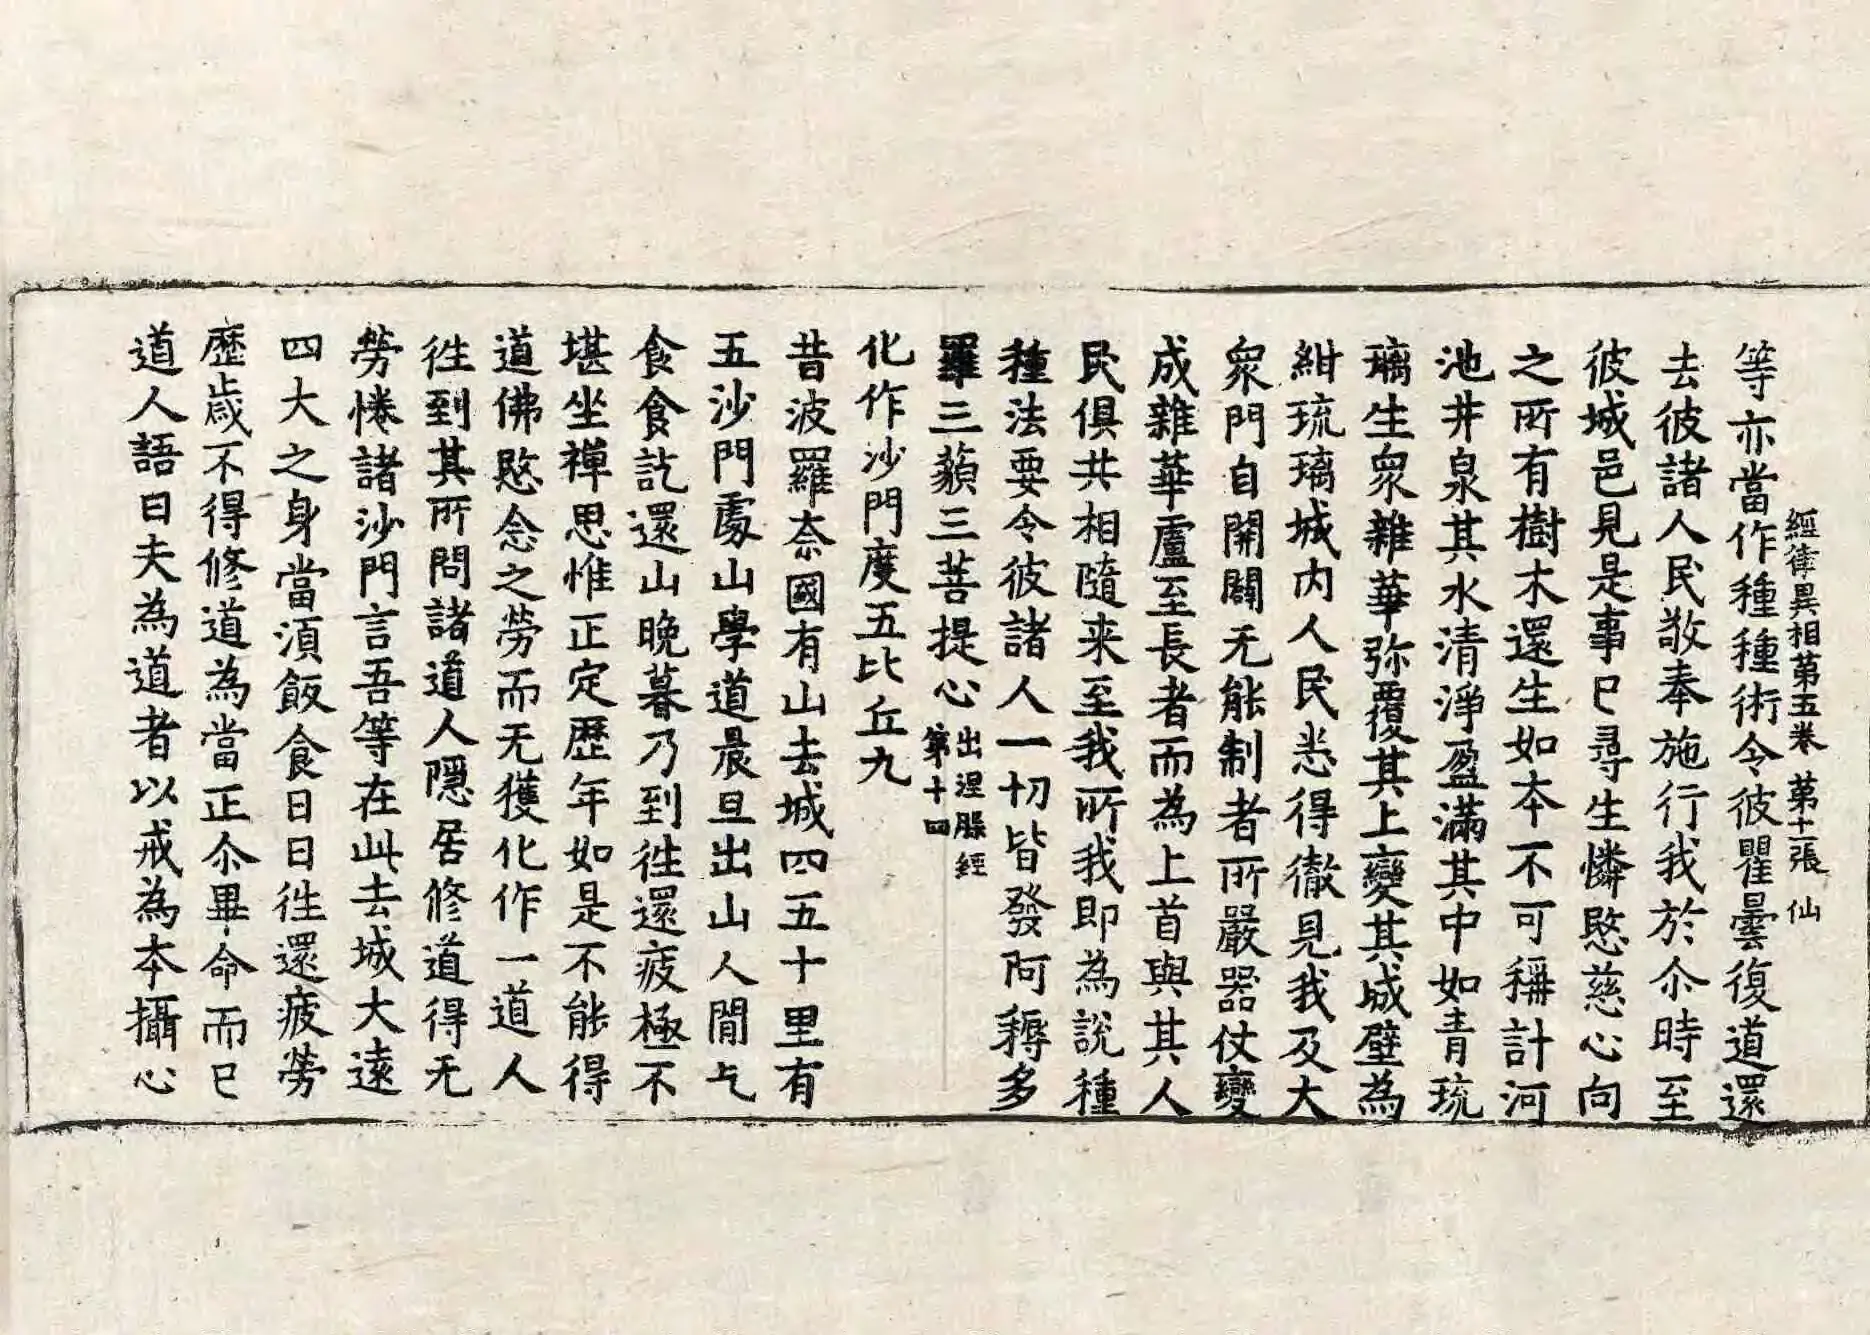 經律異相第五卷 第十二張 仙
等亦當作種種術令彼瞿曇復道還
去彼諸人民敬奉施行我於尒時至
彼城邑見是事已尋生憐愍慈心向
之所有樹木還生如本不可稱計河
池井泉其水清淨盈滿其中如青琉
璃生衆雜華弥覆其上變其城壁為
紺琉璃城內人民悉得徹見我及大
衆門自開闢无能制者所嚴器仗變
成雜華盧至長者而為上首與其人
民俱共相隨来至我所我即為說種
種法要令彼諸人一切皆發阿耨多
羅三藐三菩提心出涅槃經第十四
化作沙門度五比丘九
昔波羅奈國有山去城四五十里有
五沙門處山學道晨旦出山人間乞
食食訖還山晚暮乃到徃還疲極不
堪坐禪思惟正定歷年如是不能得
道佛愍念之勞而无獲化作一道人
徃到其所問諸道人隱居修道得无
勞惓諸沙門言吾等在此去城大遠
四大之身當湏飯食日日徃還疲勞
歷歲不得修道為當正尒畢命而已
道人語曰夫為道者以戒為本攝心